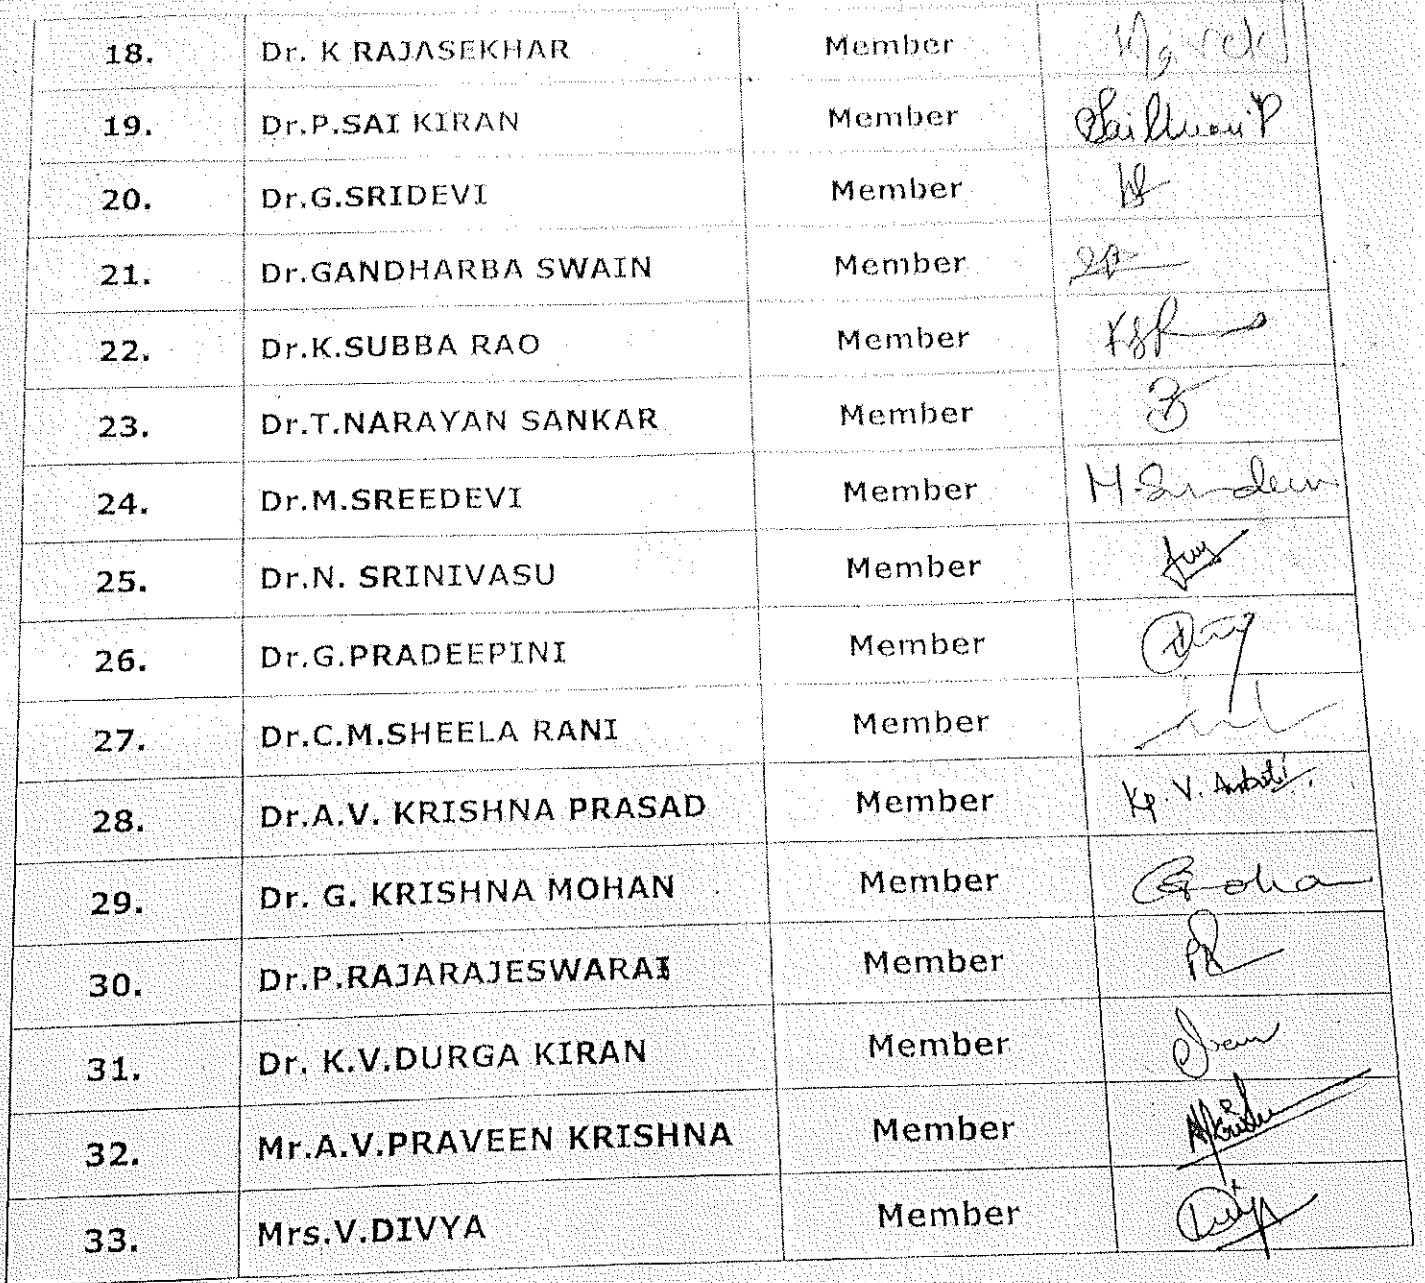 18. Dr. K RAJASEKHAR Member
19. Dr.P.SAI KIRAN Member
20. Dr.G.SRIDEVI Member
21. Dr.GANDHARBA SWAIN Member
22. Dr.K.SUBBA RAO Member KSR
23. Dr.T.NARAYAN SANKAR Member
24. Dr.M.SREEDEVI Member M.
25. Dr.N. SRINIVASU Member
26. Dr.G.PRADEEPINI Member
27. Dr.C.M.SHEELA RANI Member
28. Dr.A.V. KRISHNA PRASAD Member Kp. V.
29. Dr. G. KRISHNA MOHAN Member
30. Dr.P.RAJARAJESWARAI Member
31. Dr. K.V.DURGA KIRAN Member
32. Mr.A.V.PRAVEEN KRISHNA Member
33. Mrs.V.DIVYA Member